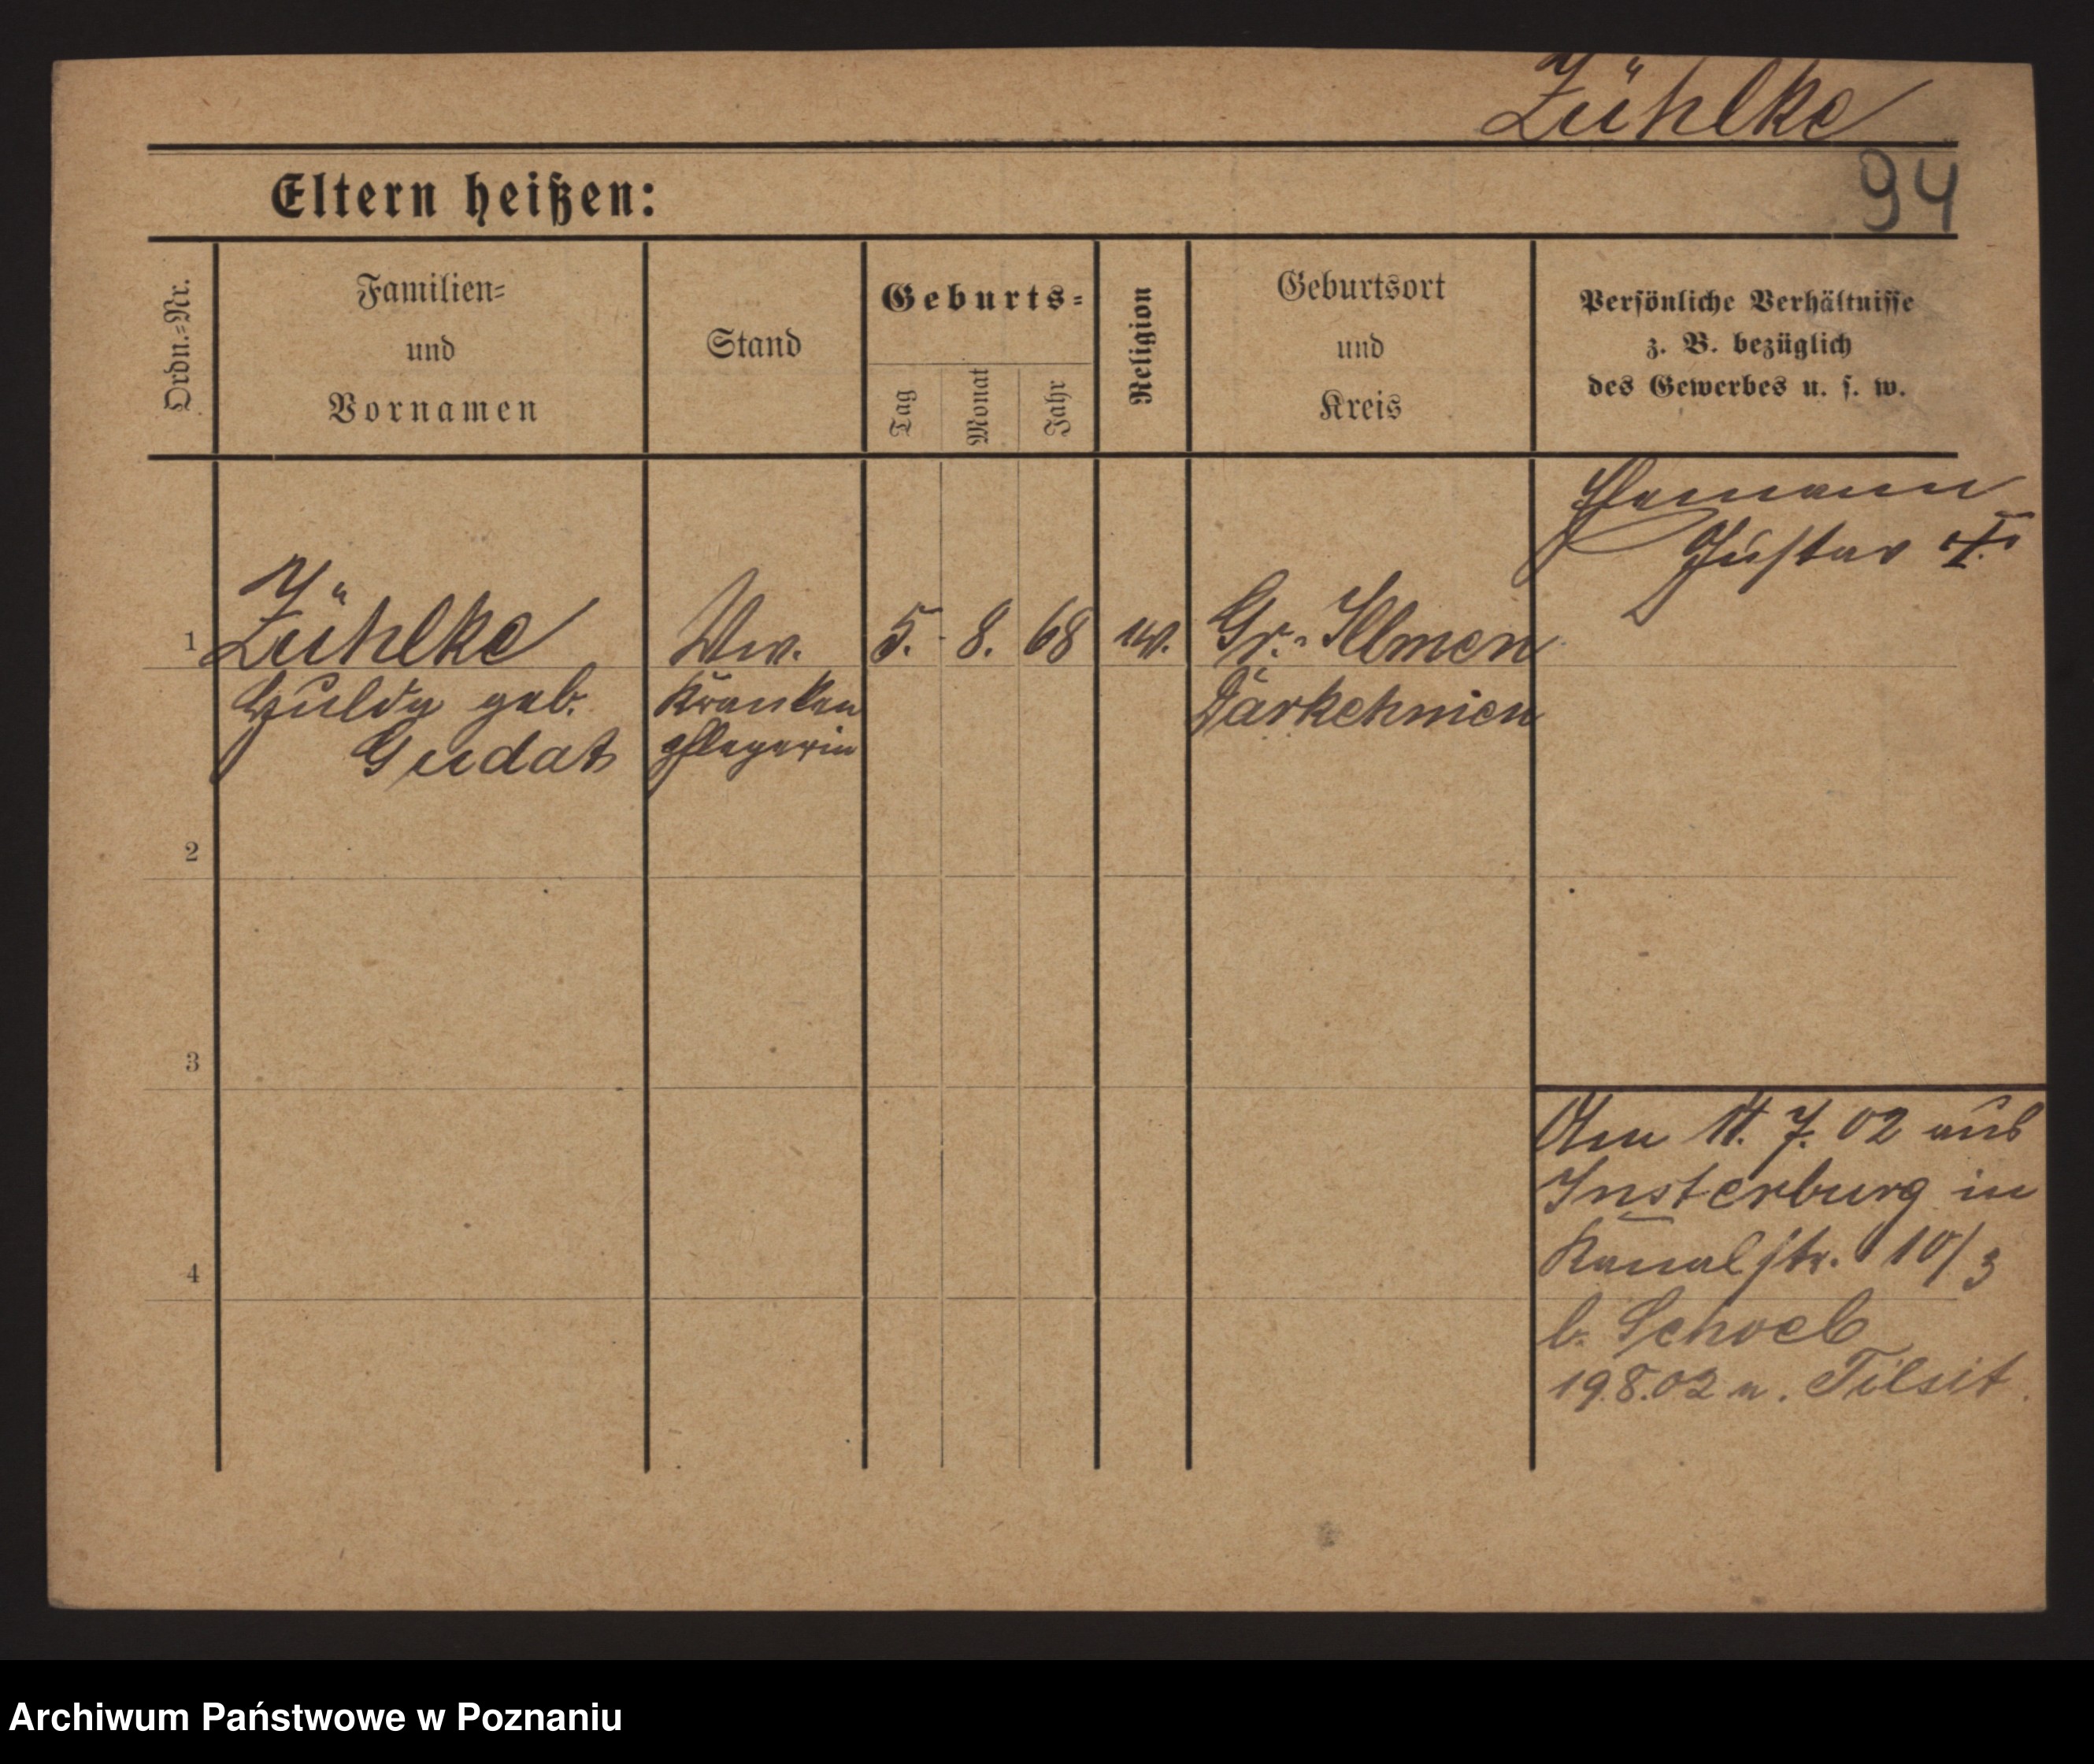 Zühlke
94
Eltern heißen:
Ordn.-Nr.
Familien-
und
Vornamen
Stand
Geburts-
Tag
Monat
Jahr
Religion
Geburtsort
und
Kreis
Persönliche Verhältnisse
z. B. bezüglich
des Gewerbes u. s. w.
Ehemann
Gustav †
1 Zühlke Ww. 5. 8. 68 ev. Gr. Illmen
Hulda geb. Kranken Darkehmen
Gudat pflegerin
2
3
4
Am 11. 7. 02 aus
Insterburg in
Kanalstr. 10/3
b. Schoeb
19.8.02 n. Tilsit.
Archiwum Państwowe w Poznaniu